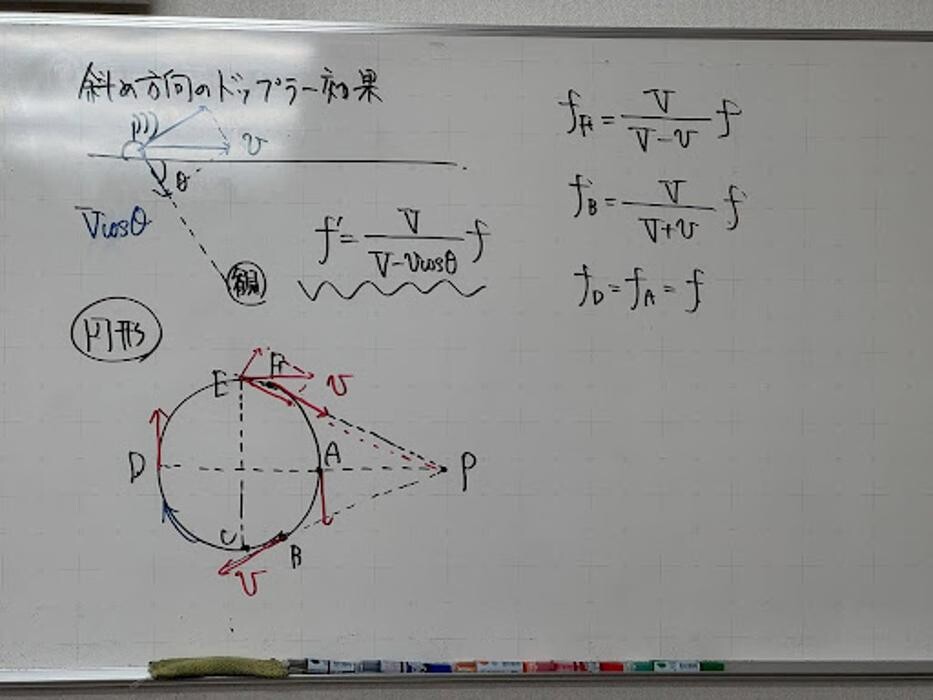 斜め方向のドップラー効果
v
θ
Vcosθ
f'=V/(V-vcosθ) f
観
円形
E
F
v
D
A
P
C
B
v
fF=V/(V-v) f
fB=V/(V+v) f
fD=fA=f